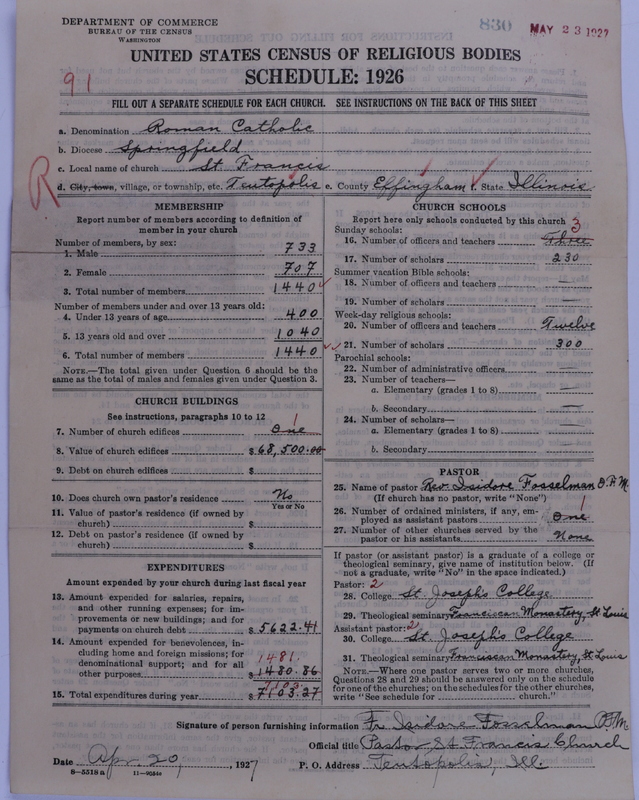 DEPARTMENT OF COMMERCE
BUREAU OF THE CENSUS
WASHINGTON
830
MAY 23 1927
UNITED STATES CENSUS OF RELIGIOUS BODIES
SCHEDULE: 1926
91
FILL OUT A SEPARATE SCHEDULE FOR EACH CHURCH. SEE INSTRUCTIONS ON THE BACK OF THIS SHEET
a. Denomination Roman Catholic
b. Diocese Springfield
c. Local name of church St. Francis
R
d. City, town, village, or township, etc. Teutopolis e. County Effingham f. State Illinois
MEMBERSHIP
Report number of members according to definition of
member in your church
Number of members, by sex:
1. Male 733
2. Female 707
3. Total number of members 1440
Number of members under and over 13 years old:
4. Under 13 years of age 400
5. 13 years old and over 1040
6. Total number of members 1440
NOTE.—The total given under Question 6 should be
same as the total of males and females given under Question 3.
CHURCH BUILDINGS
See instructions, paragraphs 10 to 12
7. Number of church edifices One 1
8. Value of church edifices $68,500.00
9. Debt on church edifices $
10. Does church own pastor's residence No
Yes or No
11. Value of pastor's residence (if owned by
church) $
12. Debt on pastor's residence (if owned by
church) $
EXPENDITURES
Amount expended by your church during last fiscal year
13. Amount expended for salaries, repairs,
and other running expenses; for im-
provements or new buildings; and for
payments on church debt $5622.41
14. Amount expended for benevolences, in-
cluding home and foreign missions; for
denominational support; and for all
other purposes $1480.86
1481
15. Total expenditures during year $7103.27
CHURCH SCHOOLS
Report here only schools conducted by this church
Sunday schools:
16. Number of officers and teachers Three 3
17. Number of scholars 230
Summer vacation Bible schools:
18. Number of officers and teachers —
19. Number of scholars —
Week-day religious schools:
20. Number of officers and teachers Twelve
21. Number of scholars 300
Parochial schools:
22. Number of administrative officers —
23. Number of teachers—
a. Elementary (grades 1 to 8) —
b. Secondary —
24. Number of scholars—
a. Elementary (grades 1 to 8) —
b. Secondary —
PASTOR
25. Name of pastor Rev. Isidore Fosselman O.F.M.
(If church has no pastor, write "None")
26. Number of ordained ministers, if any, em-
ployed as assistant pastors One 1
27. Number of other churches served by the
pastor or his assistants None
If pastor (or assistant pastor) is a graduate of a college or
theological seminary, give name of institution below. (If
not a graduate, write "No" in the space indicated.)
Pastor: 2
28. College St. Josephs College
29. Theological seminary Franciscan Monastery, St Louis
Assistant pastor: 2
30. College St. Josephs College
31. Theological seminary Franciscan Monastery, St Louis
NOTE.—Where one pastor serves two or more churches,
Questions 28 and 29 should be answered only on the schedule
for one of the churches; on the schedules for the other churches,
write "See schedule for church."
Signature of person furnishing information Fr. Isidore Fosselman O.F.M.
Official title Pastor St Francis Church
Date Apr. 20, 1927 P. O. Address Teutopolis, Ill.
8—5518 a